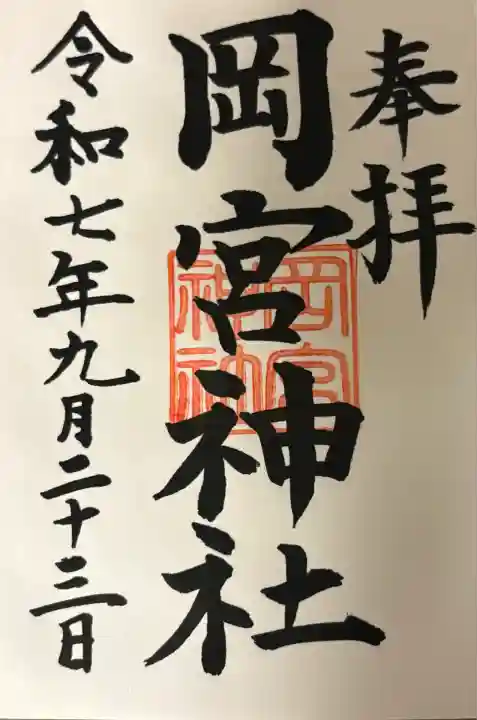 奉拝
岡宮神社
岡宮
神社
令和七年九月二十三日